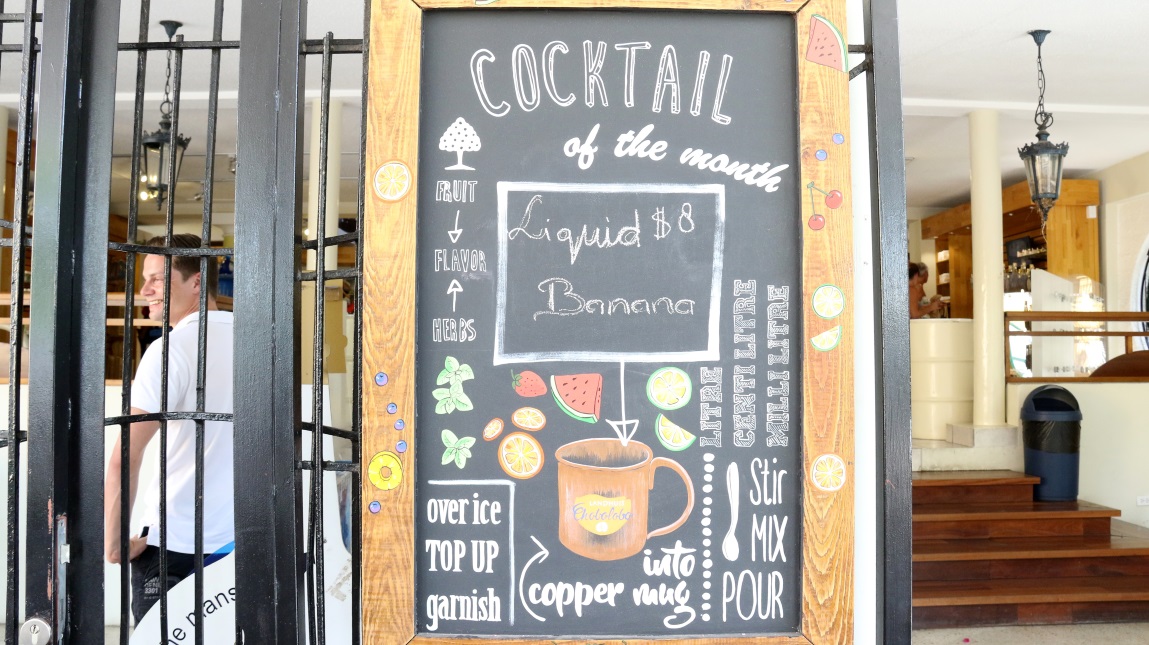 COCKTAIL
of the month
FRUIT
FLAVOR
HERBS
Liquid $8
Banana
LITRE
CENTI LITRE
MILLI LITRE
Chobolobo
over ice
TOP UP
garnish
into
copper mug
Stir
MIX
POUR
he mans